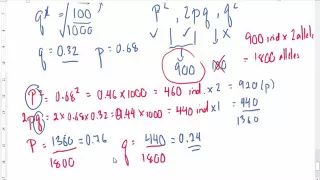 q² = √100/1000
p², 2pq, q²
q = 0.32 p = 0.68
↓ ↓ ↓ x
900 100
900 ind x 2 alleles
= 1800 alleles
p² = 0.68² = 0.46 x 1000 = 460 ind. x 2 = 920 (p)
2pq = 2 x 0.68 x 0.32 = 0.44 x 1000 = 440 ind x 1 = 440
1360
p = 1360/1800 = 0.76 q = 440/1800 = 0.24